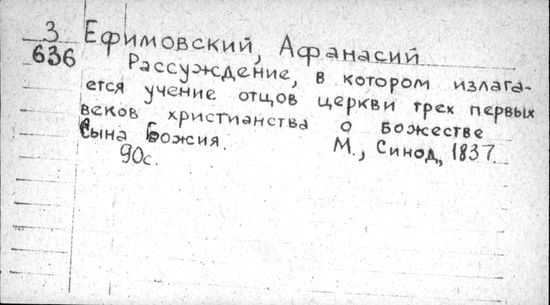 3 Ефимовский, Афанасий
636 Рассуждение, в котором излага-
ется учение отцов церкви трех первых
веков христианства о божестве
Сына Божия. М., Синод, 1837.
90с.